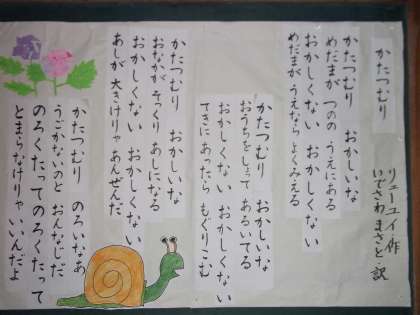 かたつむり
リューユイ作
いでさわまきと・訳
かたつむり おかしいな
めだまが つのの うえにある
おかしくない おかしくない
めだまが うえなら よくみえる
かたつむり おかしいな
おうちを しょって あるいてる
おかしくない おかしくない
てきに あったら もぐりこむ
かたつむり おかしいな
おなかが そっくり あしになる
おかしくない おかしくない
あしが 大きけりゃ あんぜんだ
かたつむり のろいなあ
うごかないのと おんなじだ
のろくたって のろくたって
とまらなけりゃ いいんだよ